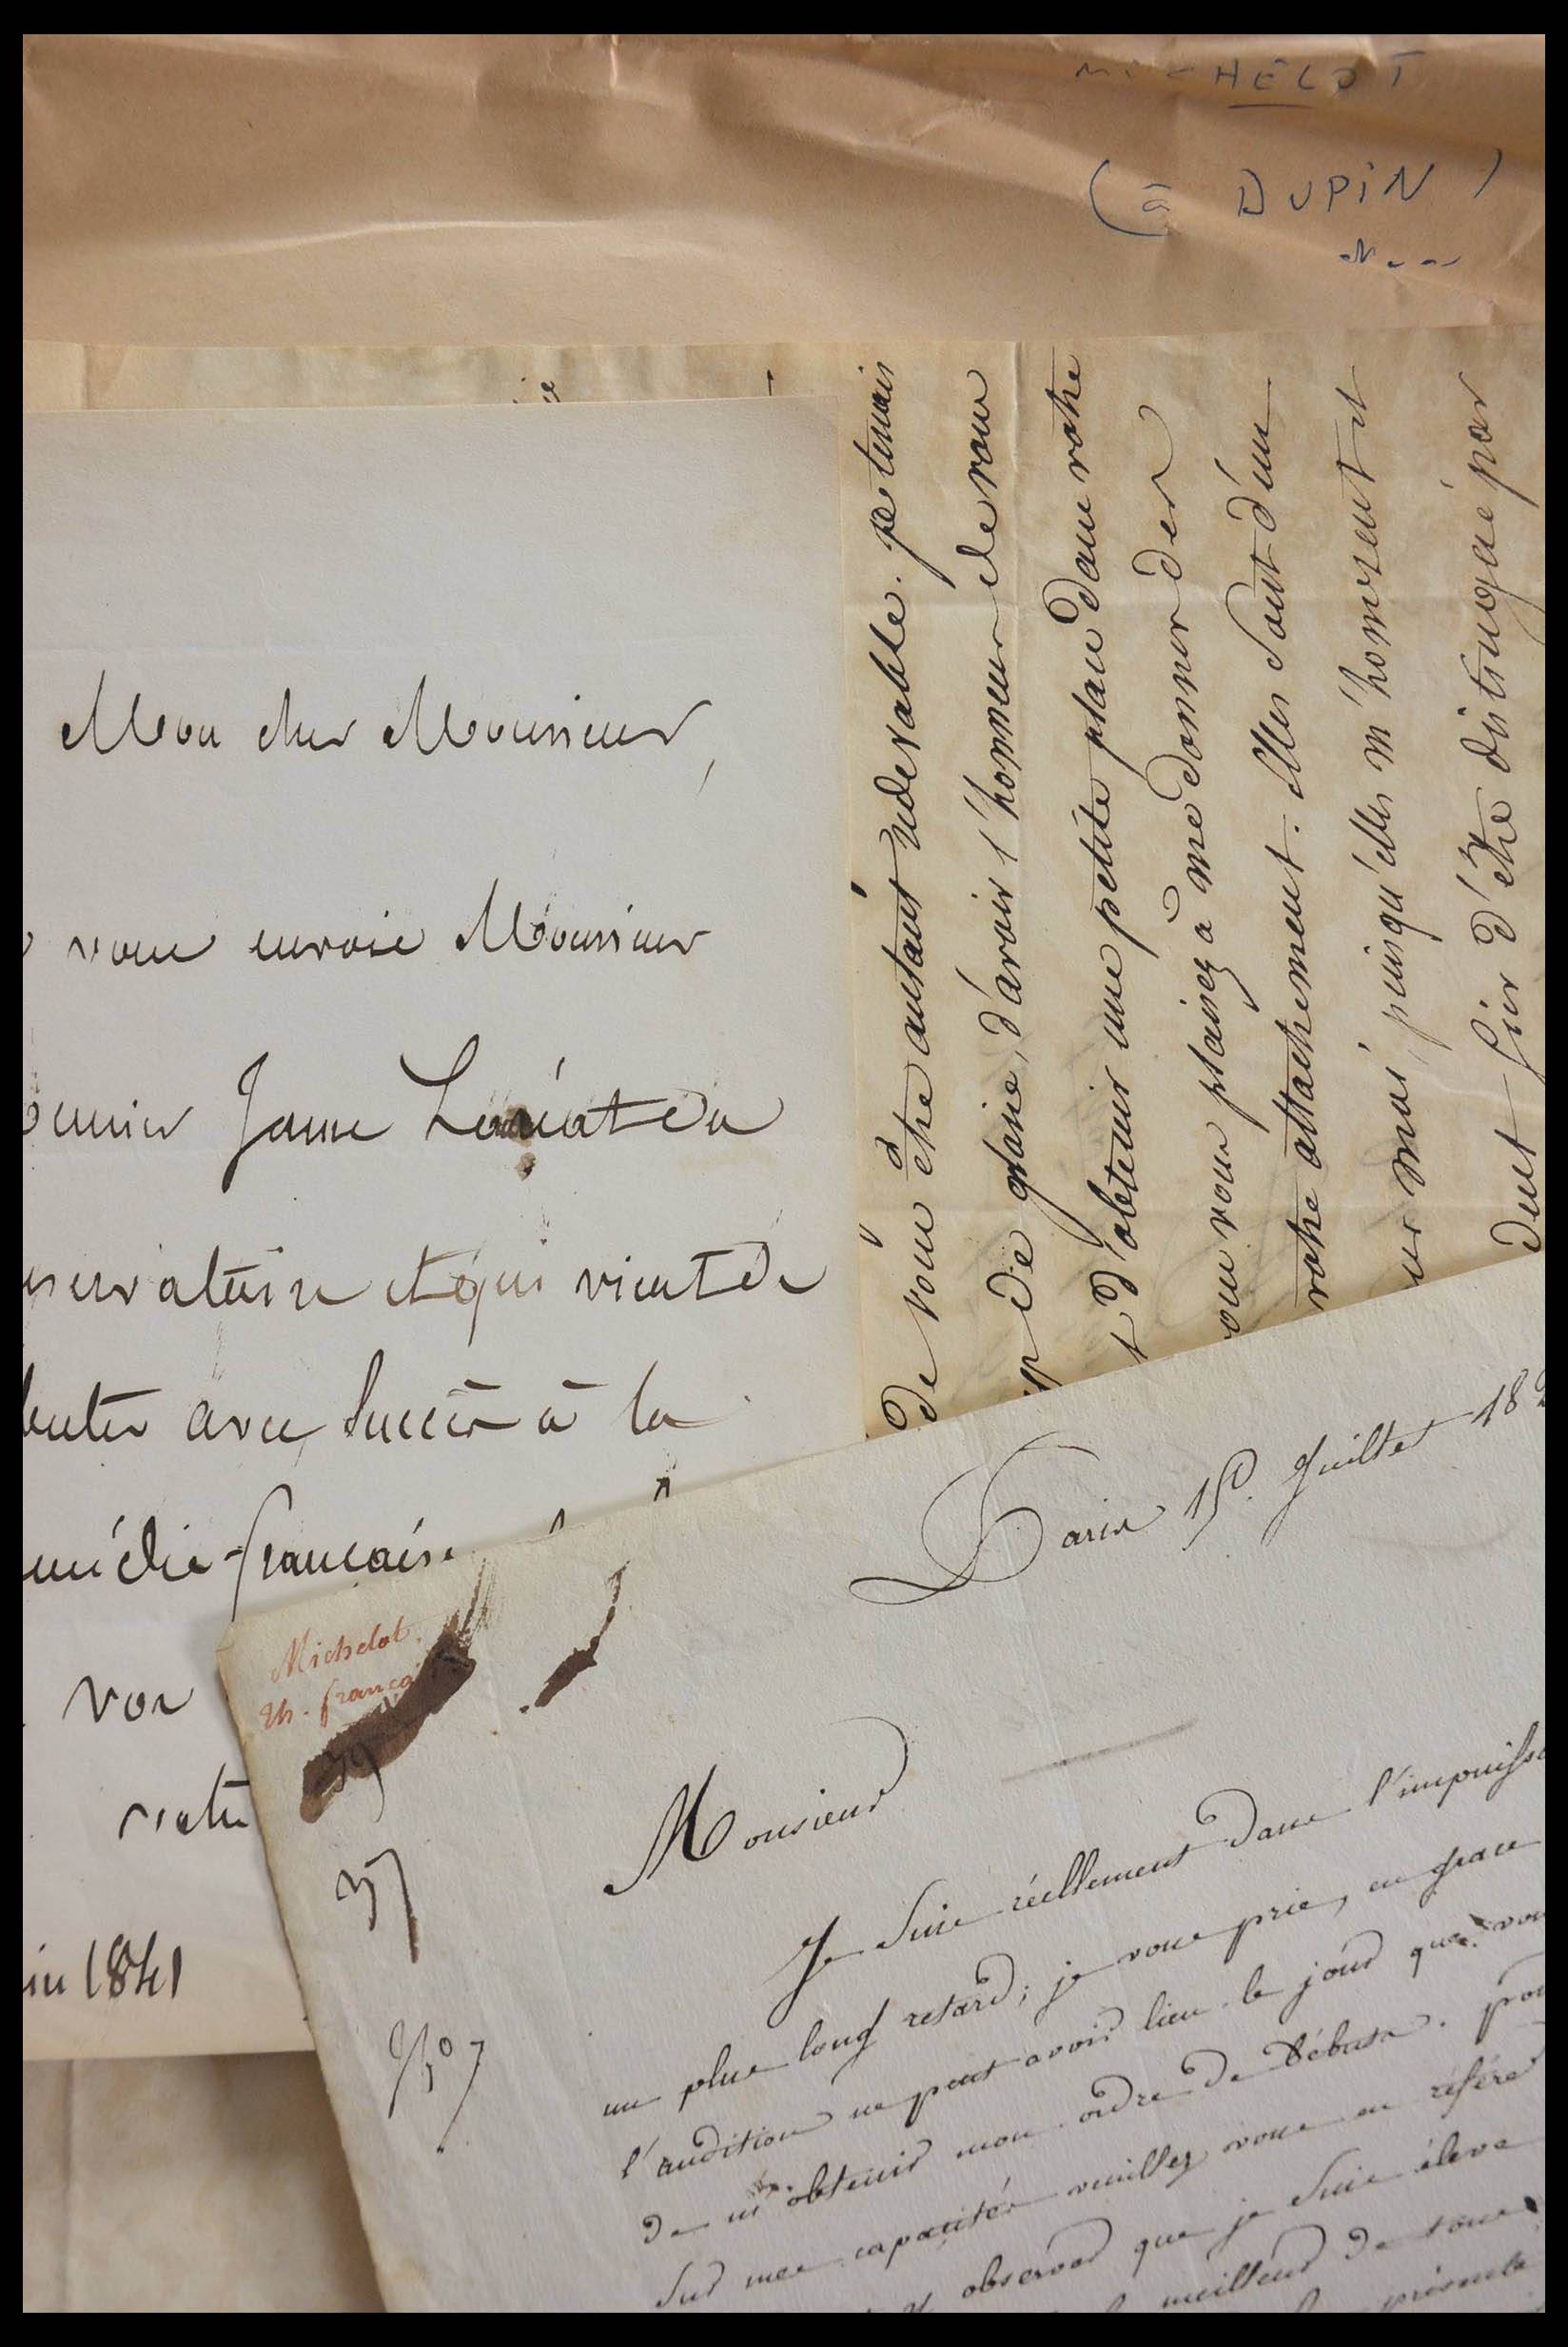 MICHELOT
(à DUPIN)
Mon cher Monsieur,
vous envoie Monsieur
Jame
et qui vient de
avec succès à la
française
vos
in 1841
de vous être autant redevable. je tenais
de gloire, d'avoir l'honneur de vous
t d'obtenir une petite place dans votre
vous plaisez à me donner des
votre attachement. Elles sont d'un
moi, puisqu'elles m'honorent et
fier d'être distingué par
Paris 15. Juillet 18
Michelot.
th. françai
39
37
Monsieur
Je suis réellement dans l'impuissa
un plus long retard; je vous prie, en grace
l'audition ne peut avoir lieu le jour que vou
de m'obtenir mon ordre de débuts. pou
sur mes capacités veuillez vous en référer
observer que je suis élève
meilleur de tous